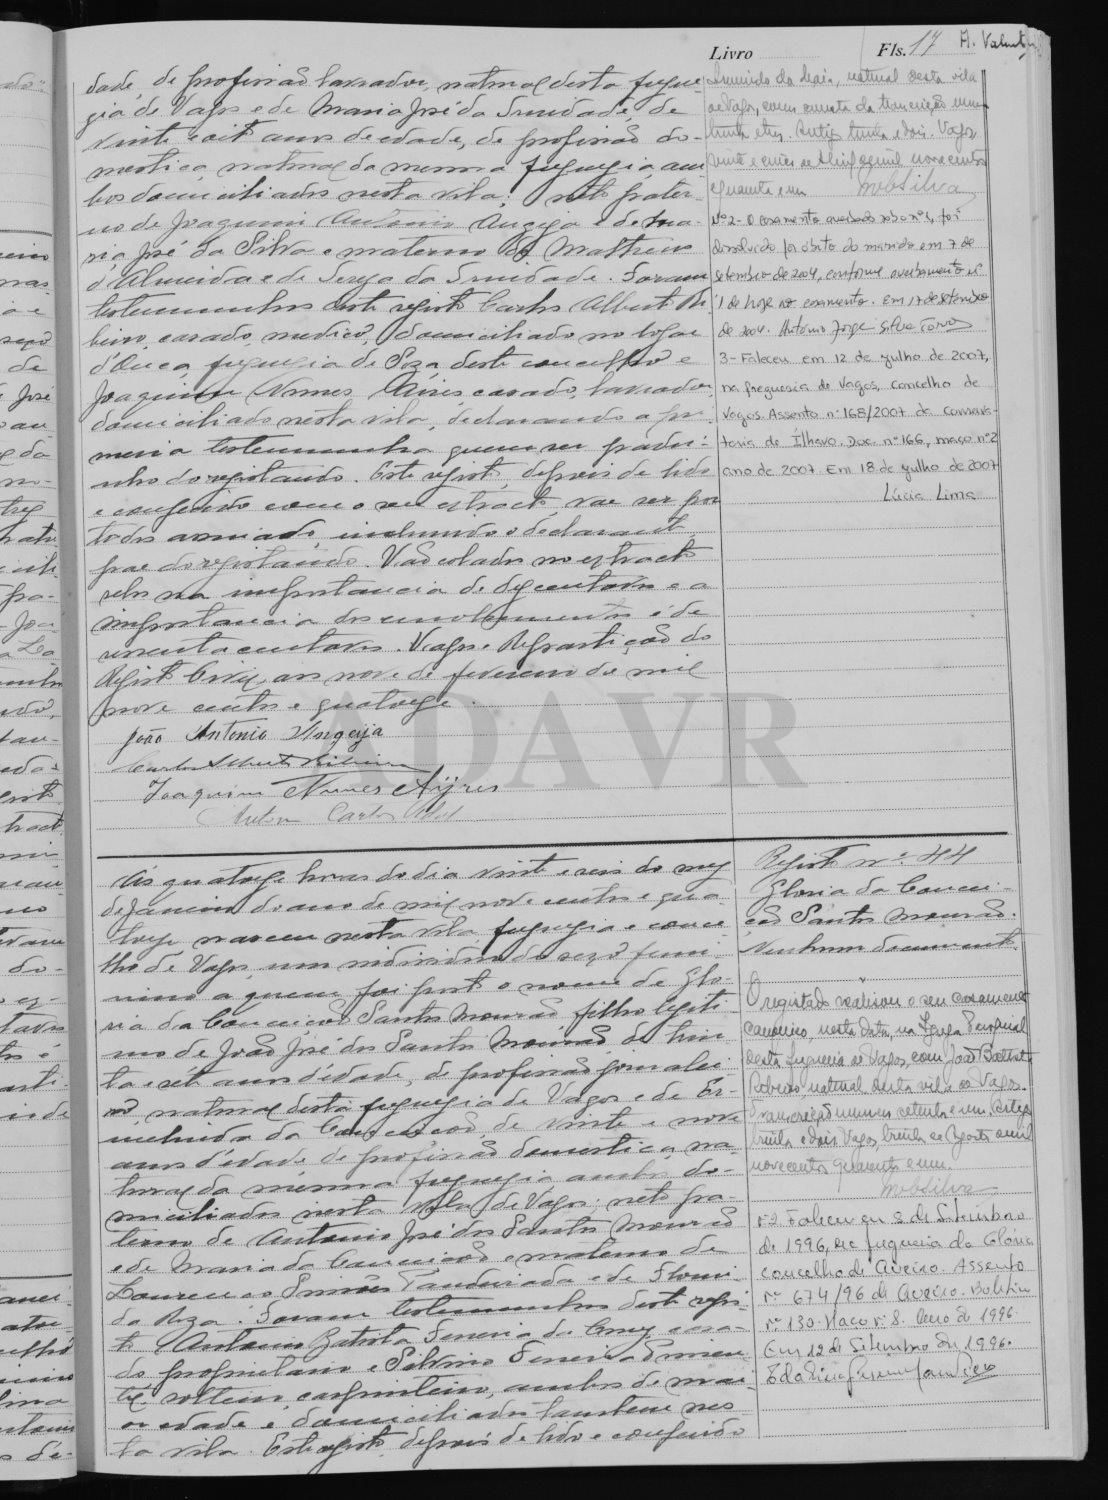 Livro Fls. 17 A. Valente
dade, de profissão lavrador, natural desta fregue-
zia de Vagos e de Maria José da Trindade, de
vinte e oito anos de edade, de profissão do-
mestica, natural da mesma freguezia, am-
bos domiciliados nesta vila; neto pater-
no de Joaquim Antonio Angeja e de Ma-
ria José da Silva e materno de Matheus
d'Almeida e de Luiza da Trindade. Foram
testemunhas deste registo Carlos Alberto Ri-
beiro, casado, medico, domiciliado no logar
d'Ouca, freguezia de Soza, deste concelho e
Joaquim Nunes Aires casado, lavrador,
domiciliado nesta vila, declarando a pri-
meira testemunha querer ser padri-
nho do registando. Este registo, depois de lido
e conferido com o seu extracto, vae ser por
todos assinado, incluindo o declarante,
pae do registando. Vão colados no extracto
selos na importancia de dez centavos e a
importancia dos emolumentos é de
centavos. Vagos e Repartição do
Registo Civil, aos nove de fevereiro de mil
nove centos e quatorze.
João Antonio Angeija
Carlos Alberto Ribeiro
Joaquim Nunes Aijres
Carlos
da Maia, natural desta vila
de Vagos, como consta da transcrição numero
trinta e tres. Vagos,
vinte e cinco de mil novecentos
quarenta e um MobSilva
Nº2 - O casamento averbado sob o nº1, foi
dissolvido por óbito do marido em 7 de
setembro de 2004, conforme averbamento nº
1 de hoje ao casamento. Em 17 de setembro
de 2004. António Jorge Silva
3 - Faleceu em 12 de julho de 2007,
na freguesia de Vagos, concelho de
Vagos. Assento n.º 168/2007 da Conserva-
toria de Ílhavo. Doc. nº 166, maço nº2
ano de 2007. Em 18 de julho de 2007
Lúcia Lima
ADAVR
Ás quatorze horas do dia vinte e seis do mez
de Janeiro do ano de mil nove centos e qua-
torze nasceu nesta vila freguezia e conce-
lho de Vagos, um individuo do sexo femi-
nino a quem foi posto o nome de Glo-
ria da Conceição Santos Mourão, filho legiti-
mo de João José dos Santos Mourão, de trin-
ta e sete anos d'edade, de profissão jornalei-
ro, natural desta freguezia de Vagos e de Er-
melinda da Conceição, de vinte e nove
anos d'edade, de profissão domestica, na-
tural da mesma freguezia, ambos do-
miciliados nesta vila de Vagos; neto pa-
terno de Antonio José dos Santos Mourão
e de Maria da Conceição e materno de
Lourenço Simões e de
da Roza. Foram testemunhas deste regis-
to Antonio Batista Ferreira da Cruz, casa-
do proprietario e Silvino Ferreira
solteiro, carpinteiro, ambos de mai-
or edade e domiciliados tambem nes-
ta vila. Este registo, depois de lido e conferido
Registo nº. 44
Gloria da Concei-
ção Santos Mourão.
Nenhum documento.
O registado realisou o seu casamento
canonico, nesta data, na Igreja Paroquial
desta freguezia de Vagos, com João Baptista
Ribeiro, natural desta vila de Vagos.
Transcrição numero setenta e um. Artigo
trinta e dois. Vagos, trinta de Agosto de mil
novecentos quarenta e um.
MobSilva
nº2 Faleceu em 8 de Setembro
de 1996, na freguezia da Gloria
concelho de Aveiro. Assento
nº 674/96 de Aveiro. Boletim
nº 130. Maço nº 8. Ano de 1996.
Em 12 de Setembro de 1996.